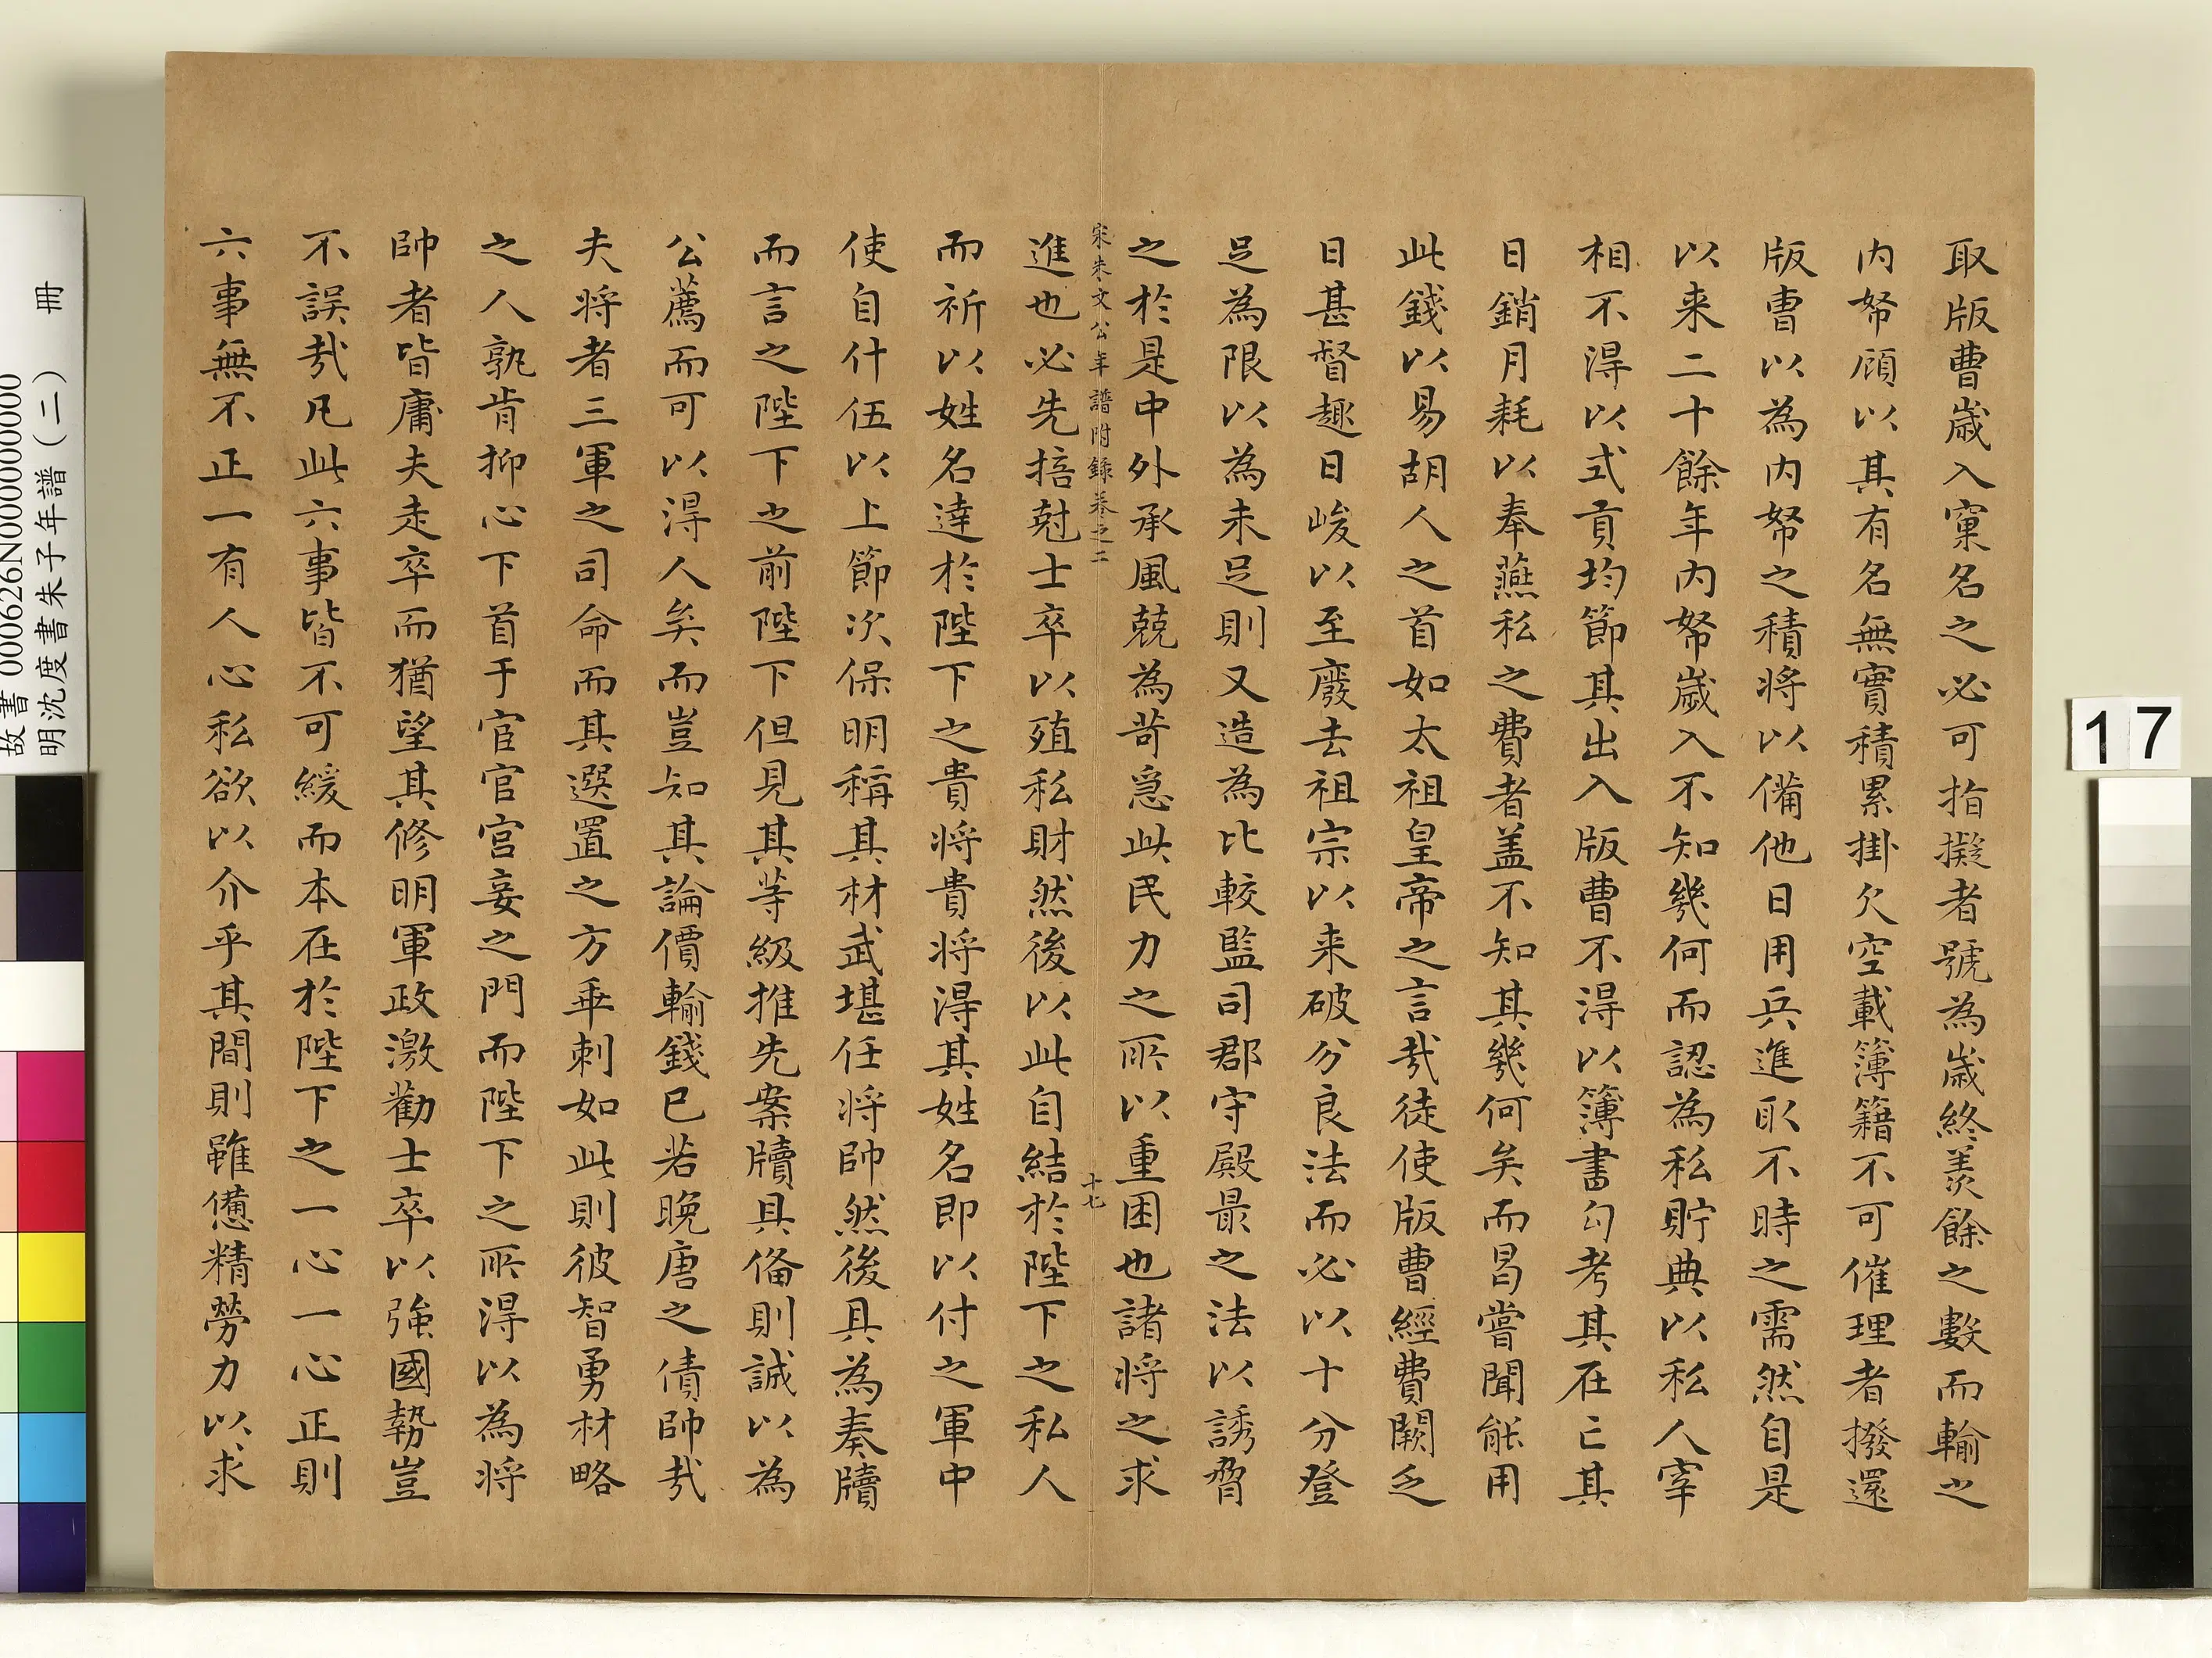 取版曹歲入窠名之必可指擬者號為歲終羨餘之數而輸之
内帑顧以其有名無實積累掛欠空載簿籍不可催理者撥還
版曹以為内帑之積將以備他日用兵進取不時之需然自是
以来二十餘年内帑歲入不知幾何而認為私貯典以私人宰
相不得以式貢均節其出入版曹不得以簿書勾考其在亡其
日銷月耗以奉燕私之費者盖不知其幾何矣而曷嘗聞能用
此錢以易胡人之首如太祖皇帝之言㢤徒使版曹經費闕乏
日甚督趣日峻以至廢去祖宗以来破分良法而必以十分登
足為限以為未足則又造為比較監司郡守殿最之法以誘脅
之於是中外承風兢為苛急此民力之所以重困也諸将之求
宋朱文公年譜附録卷之二 十七
進也必先掊尅士卒以殖私財然後以此自結於陛下之私人
而祈以姓名達於陛下之貴将貴将得其姓名即以付之軍中
使自什伍以上節次保明稱其材武堪任将帥然後具為奏牘
而言之陛下之前陛下但見其等級推先案牘具備則誠以為
公薦而可以得人矣而豈知其論價輸錢已若晚唐之債帥㢤
夫将者三軍之司命而其選置之方乖剌如此則彼智勇材略
之人孰肯抑心下首于宦官宫妾之門而陛下之所得以為将
帥者皆庸夫走卒而猶望其修明軍政激勸士卒以強國勢豈
不誤㢤凡此六事皆不可緩而本在於陛下之一心一心正則
六事無不正一有人心私欲以介乎其間則雖憊精勞力以求
17
故書000626N000000000
明沈度書朱子年譜(二) 冊